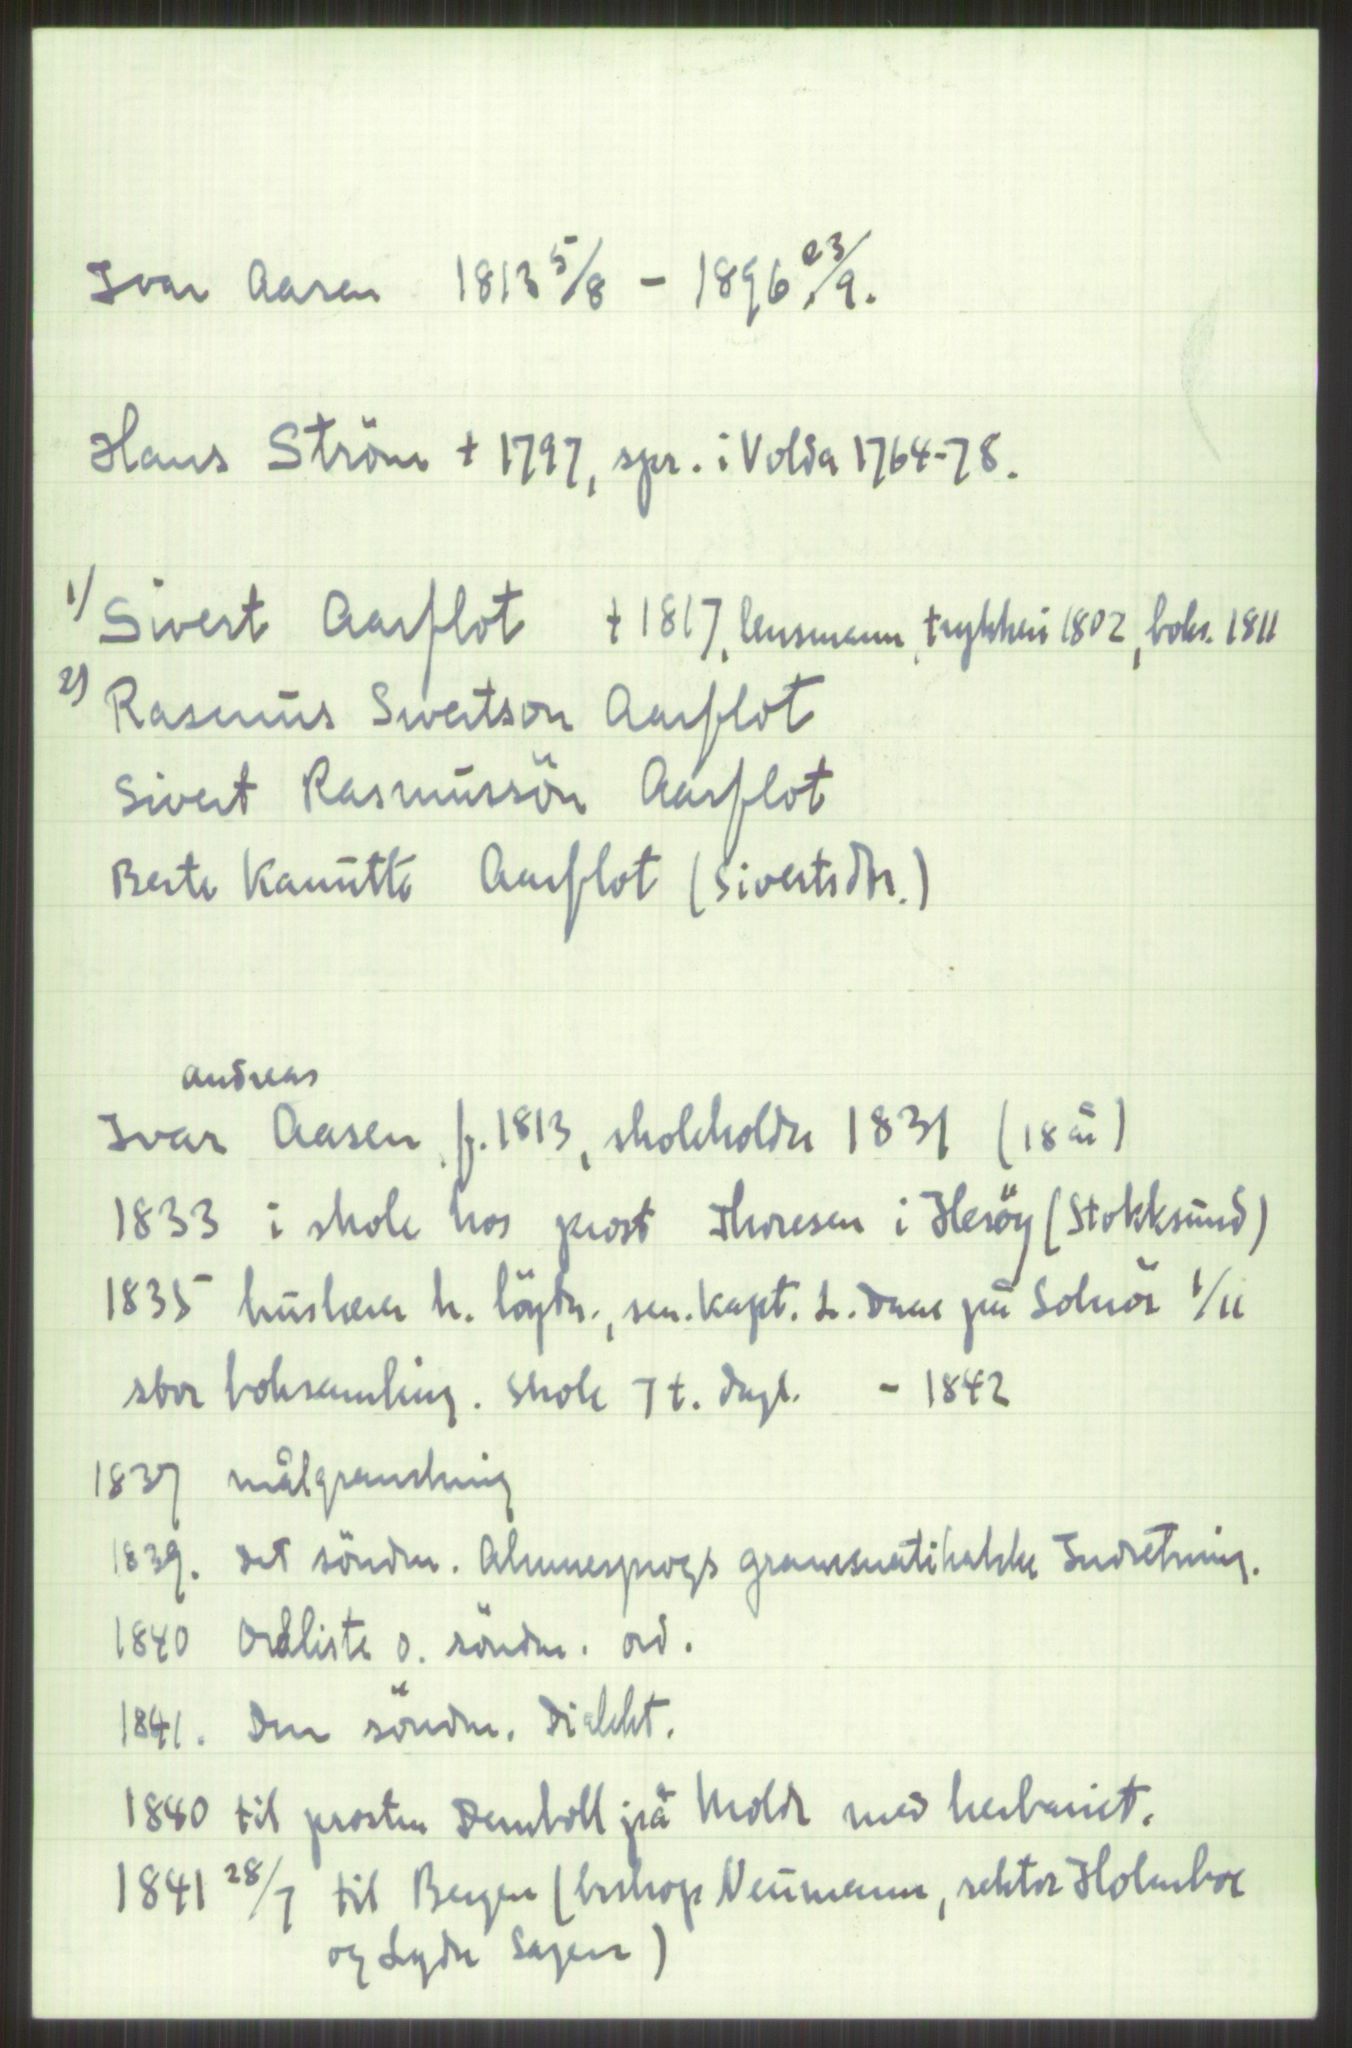 Ivar Aasen 1813 5/8 - 1896 23/9.
Hans Ström † 1797, spr. i Volda 1764-78.
1) Sivert Aarflot † 1817, lensmann, trykkeri 1802, boks. 1811
2) Rasmus Sivertson Aarflot
Sivert Rasmussön Aarflot
Berte Kanutte Aarflot (Sivertsdtr.)
Andreas
Ivar Aasen, f. 1813, skoleholder 1831 (18 år)
1833 i skole hos prost Thoresen i Heröy (Stokksund)
1835 huslærer h. löytn., sen. kapt. L. Daae på Solnör 1/11
stor boksamling. Skole 7 t. dagl. - 1842
1837 målgranskning
1839. Det söndm. Almuesprogs grammatikalske Indretning.
1840 Ordliste o. söndm. ord.
1841. Den söndm. Dialekt.
1840 til prosten Deinboll på Molde med herbariet.
1841 28/7 til Bergen (biskop Neumann, rektor Holmboe
og Lyder Sagen)